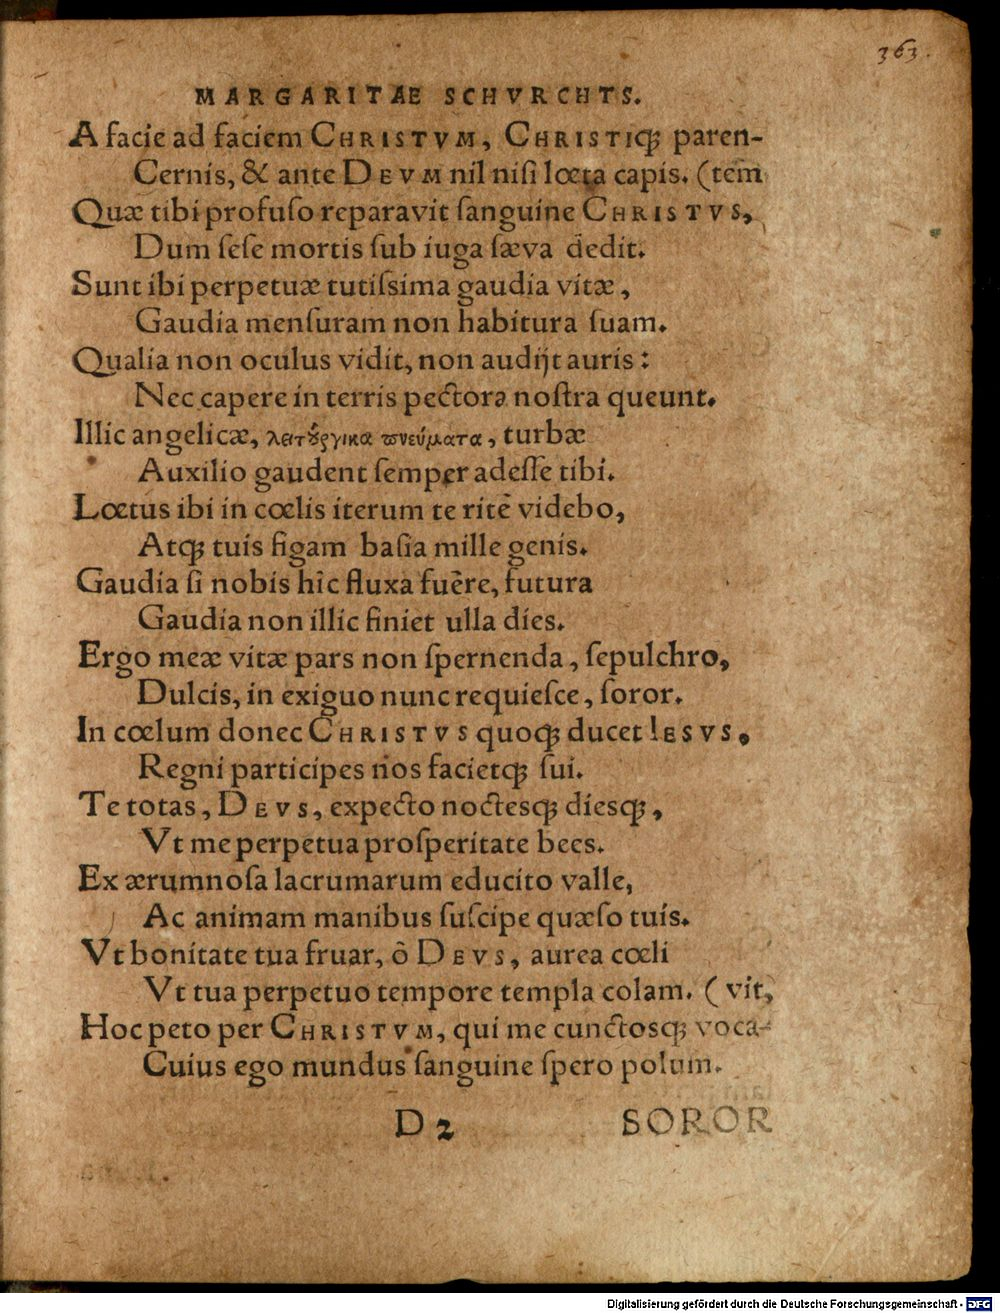 363.
MARGARITAE SCHVRCHTS.
A facie ad faciem CHRISTVM, CHRISTIq́; paren-
Cernis, & ante DEVM nil nisi lœta capis. (tem
Quæ tibi profuso reparavit sanguine CHRISTVS,
Dum sese mortis sub iuga sæva dedit.
Sunt ibi perpetuæ tutissima gaudia vitæ,
Gaudia mensuram non habitura suam.
Qualia non oculus vidit, non audijt auris:
Nec capere in terris pectora nostra queunt.
Illic angelicæ, λειτȣργικα πνεύματα, turbæ
Auxilio gaudent semper adesse tibi.
Lœtus ibi in cœlis iterum te ritè videbo,
Atq; tuis figam basia mille genis.
Gaudia si nobis hîc fluxa fuêre, futura
Gaudia non illic finiet ulla dies.
Ergo meæ vitæ pars non spernenda, sepulchro,
Dulcis, in exiguo nunc requiesce, soror.
In cœlum donec CHRISTVS quoq; ducet IESVS,
Regni participes nos facietq; sui.
Te totas, DEVS, expecto noctesq; diesq;,
Vt me perpetua prosperitate bees.
Ex ærumnosa lacrumarum educito valle,
Ac animam manibus suscipe quæso tuis.
Vt bonitate tua fruar, ô DEVS, aurea cœli
Vt tua perpetuo tempore templa colam. (vit,
Hoc peto per CHRISTVM, qui me cunctosq; voca-
Cuius ego mundus sanguine spero polum.
D 2 SOROR
Digitalisierung gefördert durch die Deutsche Forschungsgemeinschaft - DFG